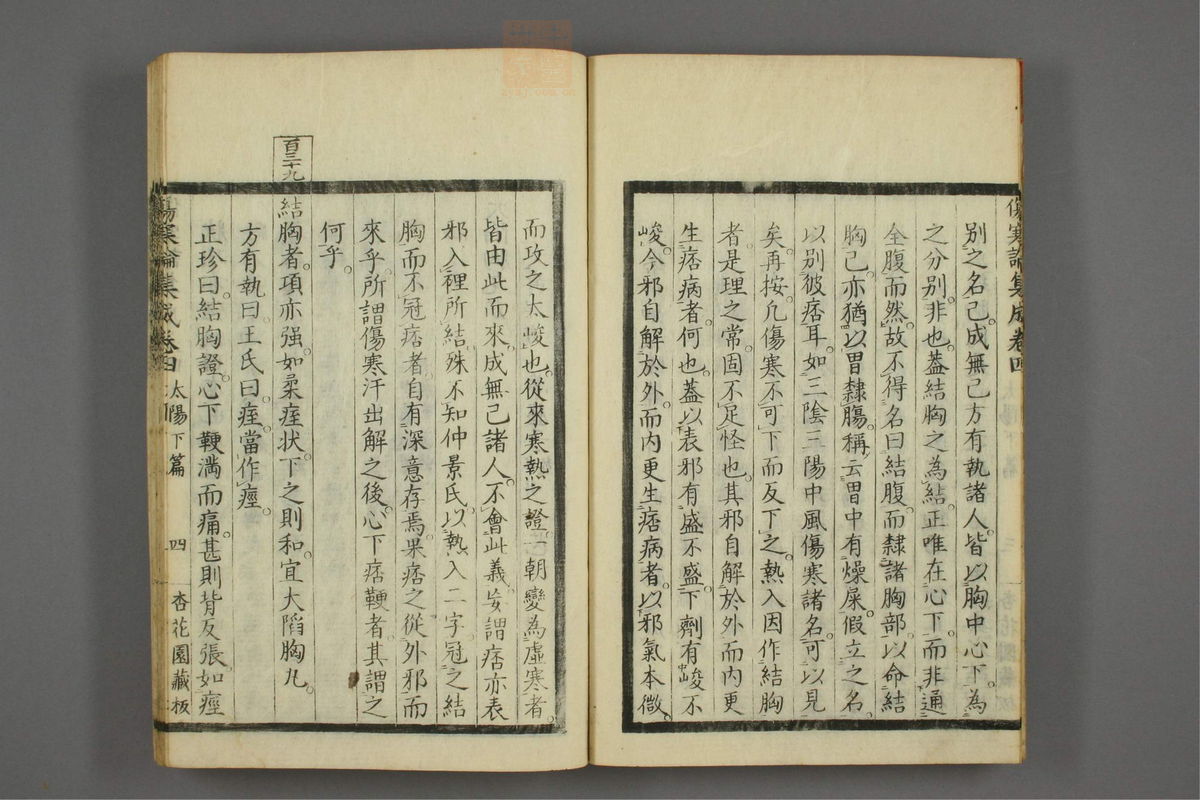 傷寒論集成卷四
別之名己。成無己方有執諸人。皆以胸中心下。為
之分別。非也。蓋結胸之為結。正唯在心下。而非通
全腹而然。故不得名曰結腹。而隸諸胸部。以命結
胸已。亦猶以胃隸膓。稱云胃中有燥屎。假立之名。
以別彼痞耳。如三陰三陽中風傷寒諸名。可以見
矣。再按。凡傷寒不可下而反下之。熱入因作結胸
者。是理之常。固不足怪也。其邪自解於外而內更
生痞病者。何也。蓋以表邪有盛不盛。下劑有峻不
峻。今邪自解於外。而內更生痞病者。以邪氣本微。
而攻之太峻也。從來寒熱之證。一朝變為虛寒者。
皆由此而來。成無己諸人。不會此義。妄謂痞亦表
邪入裡所結。殊不知仲景氏。以熱入二字。冠之結
胸而不冠痞者。自有深意存焉。果痞之從外邪而
來乎。所謂傷寒汗出解之後。心下痞鞕者。其謂之
何乎。
百三十九
結胸者。項亦强。如柔痓狀。下之則和。宜大陷胸丸。
方有執曰。王氏曰。痓。當作痙。
正珍曰。結胸證。心下鞕滿而痛。甚則背反張。如痙
傷寒論集成卷四 太陽下篇 四 杏花園藏板